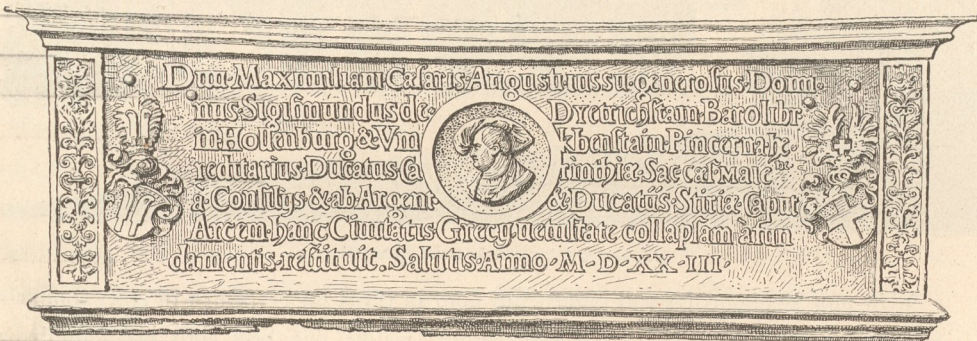 Diui·Maximiliani·Cæsaris·Augusti·iussu·generosus·Domi-
nus·Sigismundus·de· Dyetrichstain·Baro·libr
in·Hollenburg·&·Vin khenstain·Pincerna·he-
reditarius·Ducatus·Ca rinthiæ·Sac·cæs·Maie tatis
a·Consilijs·&·ab·Argent· &·Ducatus·Stiriæ·Capit
Arcem·hanc·Ciuitatis·Grecij·uetustate·collapsam·a·fun
damentis·restituit·Salutis·Anno·M·D·XX·III·